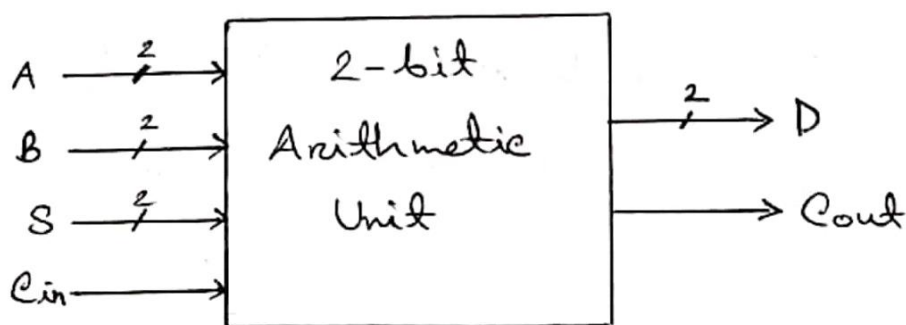 A 2
B 2
S 2
Cin
2-bit
Arithmetic
Unit
2 D
Cout